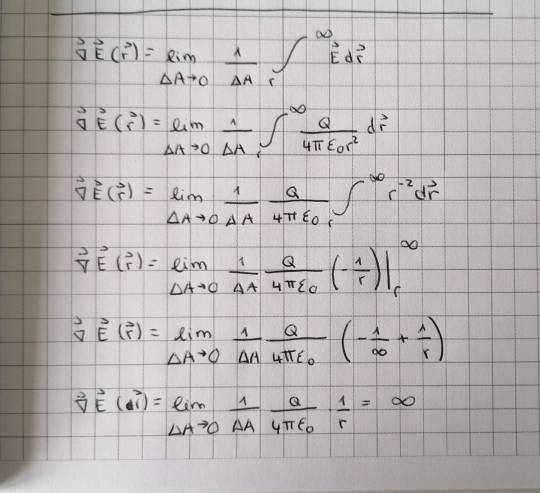 ∇⃗ E⃗ (r⃗) = lim ΔA→0 1/ΔA ∫_r^∞ E⃗ dr⃗
∇⃗ E⃗ (r⃗) = lim ΔA→0 1/ΔA ∫_r^∞ Q/(4πε₀r²) dr⃗
∇⃗ E⃗ (r⃗) = lim ΔA→0 1/ΔA Q/(4πε₀) ∫_r^∞ r⁻² dr⃗
∇⃗ E⃗ (r⃗) = lim ΔA→0 1/ΔA Q/(4πε₀) (-1/r)|_r^∞
∇⃗ E⃗ (r⃗) = lim ΔA→0 1/ΔA Q/(4πε₀) (-1/∞ + 1/r)
∇⃗ E⃗ (r⃗) = lim ΔA→0 1/ΔA Q/(4πε₀) 1/r = ∞